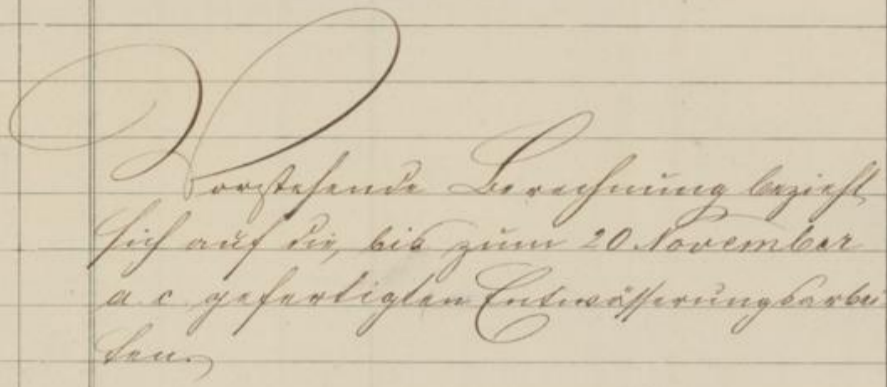 Vorstehende Berechnung bezieht
sich auf die, bis zum 20 November
a. c. gefertigten Entwässerungsarbei
ten.